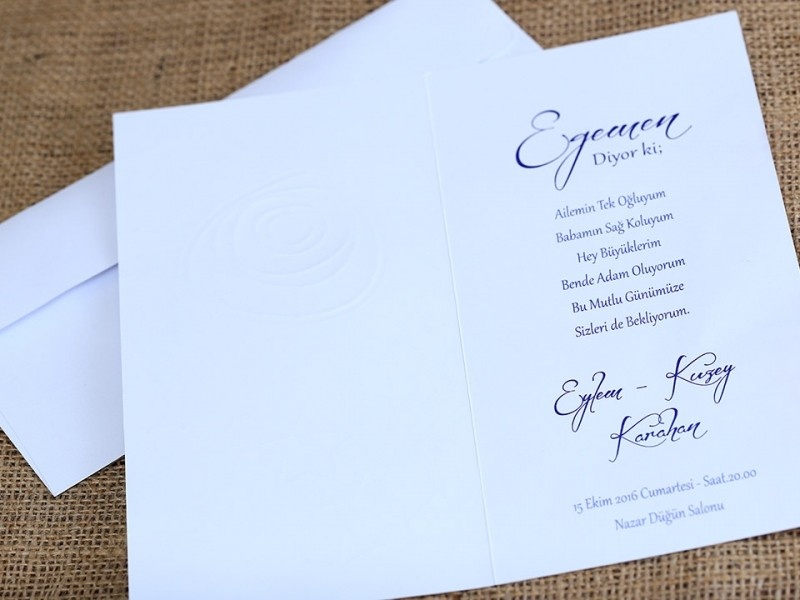 Egemen
Diyor ki;
Ailemin Tek Oğluyum
Babamın Sağ Koluyum
Hey Büyüklerim
Bende Adam Oluyorum
Bu Mutlu Günümüze
Sizleri de Bekliyorum.
Eylem - Kuzey
Karahan
15 Ekim 2016 Cumartesi - Saat.20.00
Nazar Düğün Salonu